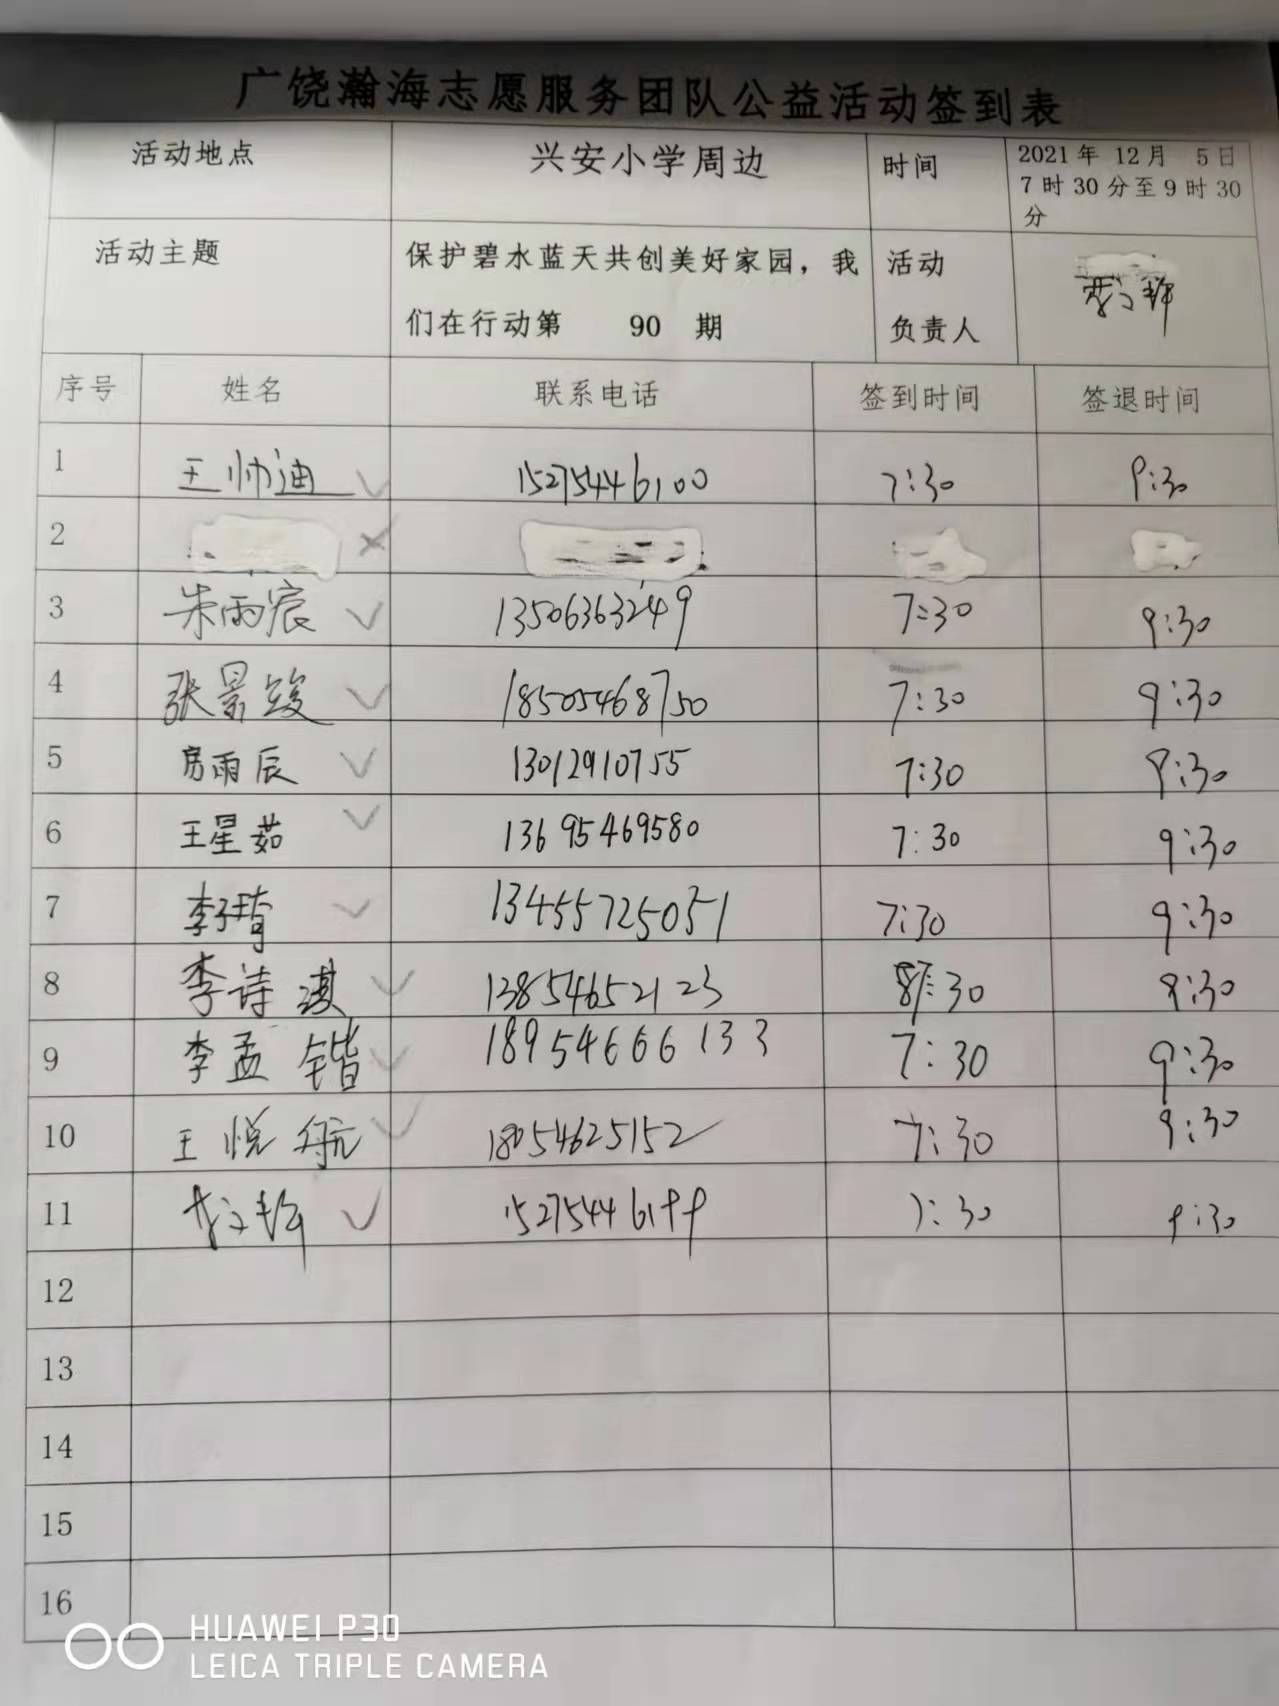 广饶瀚海志愿服务团队公益活动签到表
活动地点 兴安小学周边 时间 2021年 12月 5日
7时30分至9时30
分
活动主题 保护碧水蓝天共创美好家园，我 活动
们在行动第 90 期 负责人
序号 姓名 联系电话 签到时间 签退时间
1 王帅迪 15275446100 7:30 9:30
2
3 朱雨宸 13506363249 7:30 9:30
4 张景竣 18505468750 7:30 9:30
5 房雨辰 13012910755 7:30 9:30
6 王星茹 13695469580 7:30 9:30
7 李子琦 13455725051 7:30 9:30
8 李诗淇 13854652123 :30 9:30
9 李孟锴 18954666133 7:30 9:30
10 王悦航 18054625152 7:30 9:30
11 15275446199 7:30 9:30
12
13
14
15
16
HUAWEI P30
LEICA TRIPLE CAMERA